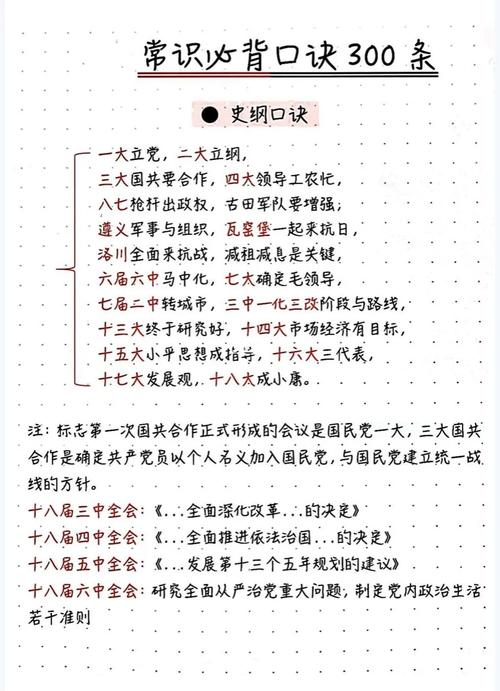 常识必背口诀300条
史纲口诀
一大立党，二大立纲，
三大国共要合作，四大领导工农忙，
八七枪杆出政权，古田军队要增强；
遵义军事与组织，瓦窑堡一起来抗日，
洛川全面来抗战，减租减息是关键，
六届六中马中化，七大确定毛领导，
七届二中转城市，三中一化三改阶段与路线，
十三大终于研究好，十四大市场经济有目标，
十五大小平思想成指导，十六大三代表，
十七大发展观，十八大成小康。
注：标志第一次国共合作正式形成的会议是国民党一大，三大国共
合作是确定共产党员以个人名义加入国民党，与国民党建立统一战
线的方针。
十八届三中全会：《...全面深化改革...的决定》
十八届四中全会：《...全面推进依法治国...的决定》
十八届五中全会：《...发展第十三个五年规划的建议》
十八届六中全会：研究全面从严治党重大问题；制定党内政治生活
若干准则